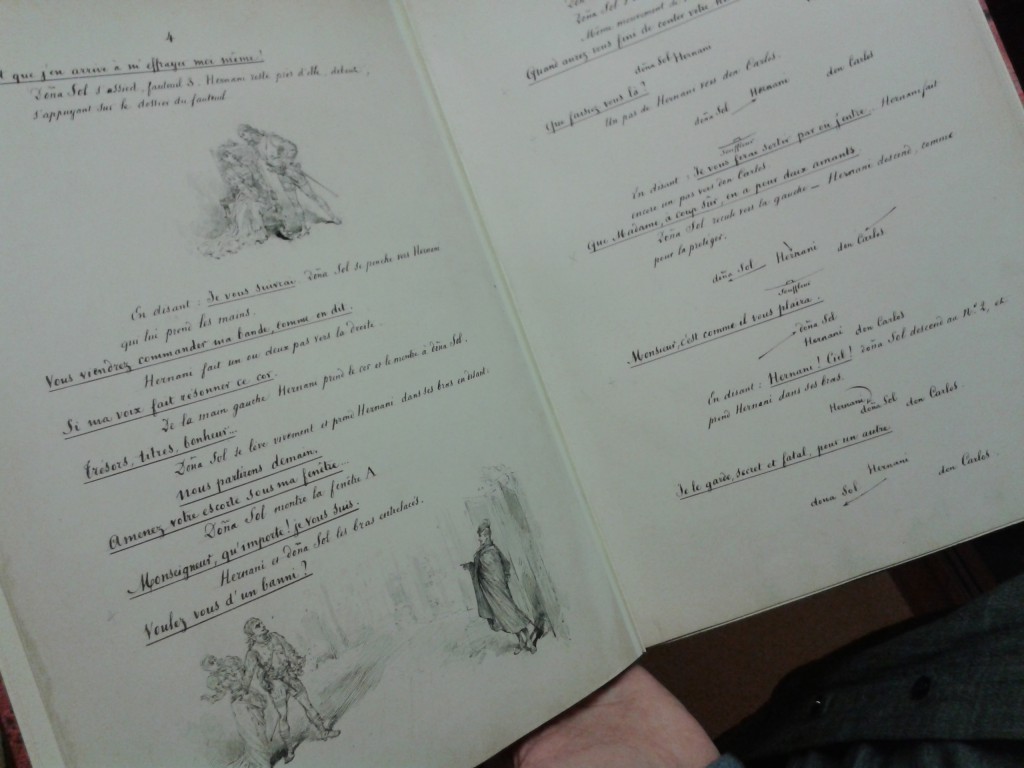 4
t que j'en arrive à m'effrayer moi même!
Doña Sol s'assied, fauteuil S. Hernani reste près d'elle, debout,
s'appuyant sur le dossier du fauteuil.
En disant: Je vous suivrai. Doña Sol se penche vers Hernani
qui lui prend les mains.
Vous viendrez commander ma bande, comme on dit.
Hernani fait un ou deux pas vers la droite.
Si ma voix fait résonner ce cor.
De la main gauche Hernani prend le cor et le montre à doña Sol.
Trésors, titres, bonheur...
Doña Sol se lève vivement et prend Hernani dans ses bras en disant:
Nous partirons demain.
Amenez votre escorte sous ma fenêtre...
Doña Sol montre la fenêtre A
Monseigneur, qu'importe! je vous suis.
Hernani et doña Sol les bras entrelacés.
Voulez vous d'un banni?
Doña Sol
Même mouvement de
Quand aurez vous fini de conter votre
doña Sol Hernani
Que faisiez vous là?
Un pas de Hernani vers don Carlos.
doña Sol Hernani don Carlos
Souffleur
En disant: Je vous ferai sortir par où j'entre. Hernani fait
encore un pas vers don Carlos.
Que Madame, à coup sûr, en a pour deux amants
Doña Sol recule vers la gauche — Hernani descend, comme
pour la protéger.
doña Sol Hernani don Carlos
Souffleur
Monsieur, c'est comme il vous plaira.
doña Sol
Hernani don Carlos
En disant: Hernani! Ciel! doña Sol descend au N.º 2, et
prend Hernani dans ses bras.
Hernani doña Sol don Carlos
Je le garde, secret et fatal, pour un autre
doña Sol Hernani don Carlos.